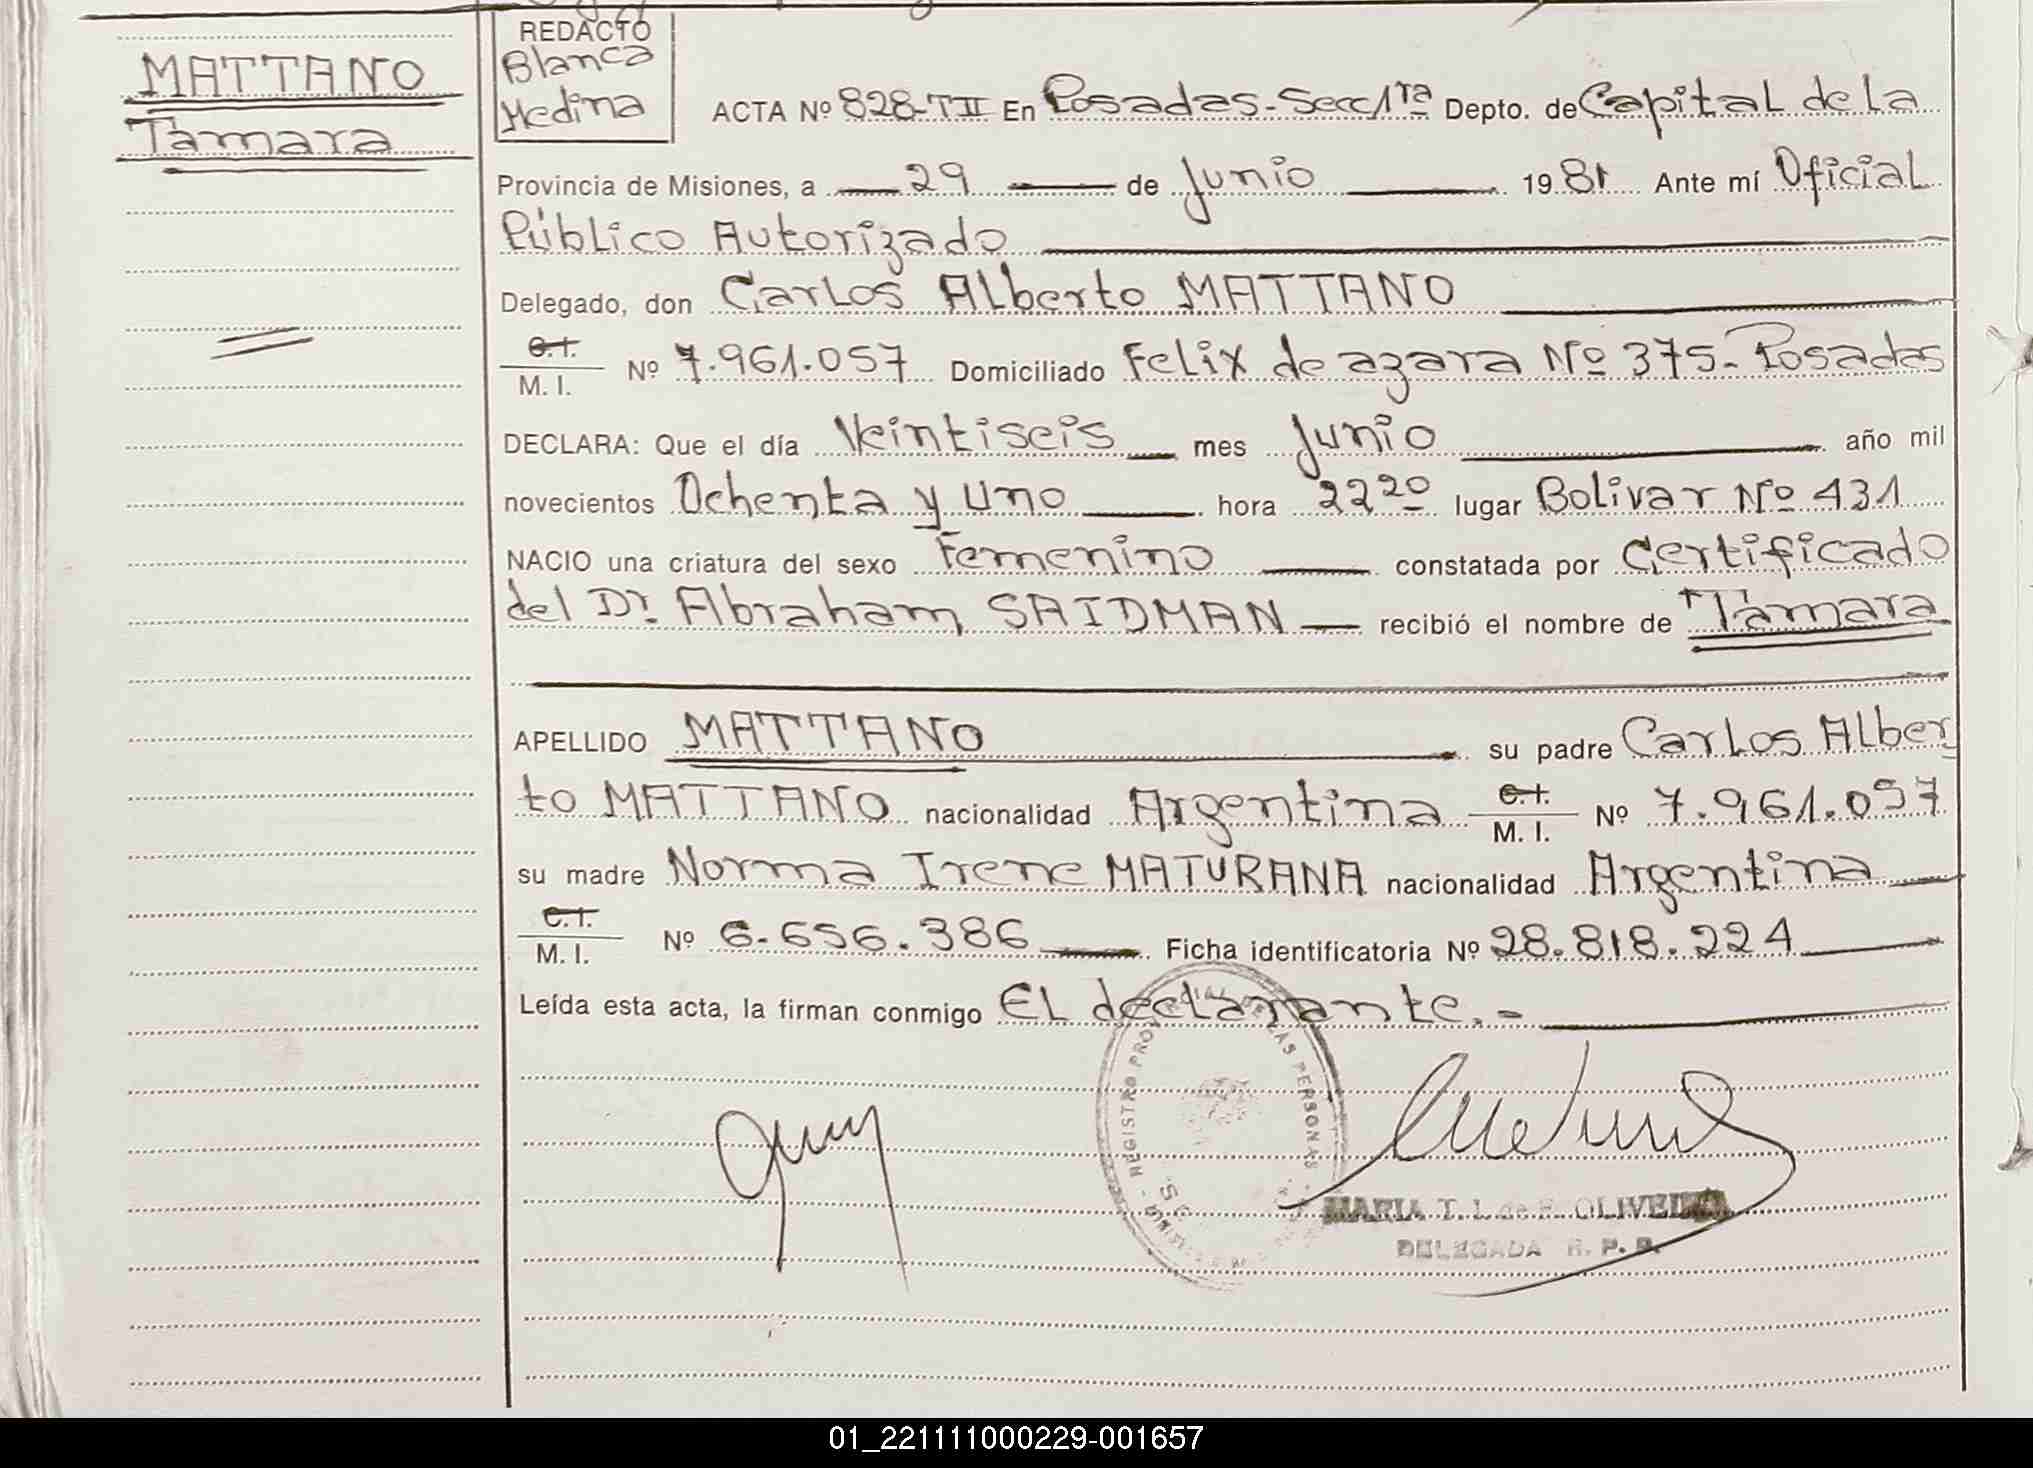 MATTANO
Tamara
REDACTO
Blanca
Medina
ACTA Nº 828-TII En Posadas-Secc1ra Depto. de Capital de la
Provincia de Misiones, a 29 de Junio 1981 Ante mí Oficial
Público Autorizado
Delegado, don Carlos Alberto MATTANO
C.I.
M. I. Nº 7.961.057 Domiciliado Felix de azara Nº 375-Posadas
DECLARA: Que el día Veintiseis mes Junio año mil
novecientos Ochenta y Uno hora 22 20 lugar Bolivar Nº 431
NACIO una criatura del sexo Femenino constatada por Certificado
del Dr. Abraham SAIDMAN recibió el nombre de Tamara
APELLIDO MATTANO su padre Carlos Alber
to MATTANO nacionalidad Argentina C.I. M. I. Nº 7.961.057
su madre Norma Irene MATURANA nacionalidad Argentina
C.I.
M. I. Nº 6.656.386 Ficha identificatoria Nº 28.818.224
Leída esta acta, la firman conmigo El declarante.-
REGISTRO PROVINCIAL DE LAS PERSONAS
MARIA T. I. de R. OLIVEIRA
DELEGADA R. P. P.
01_221111000229-001657